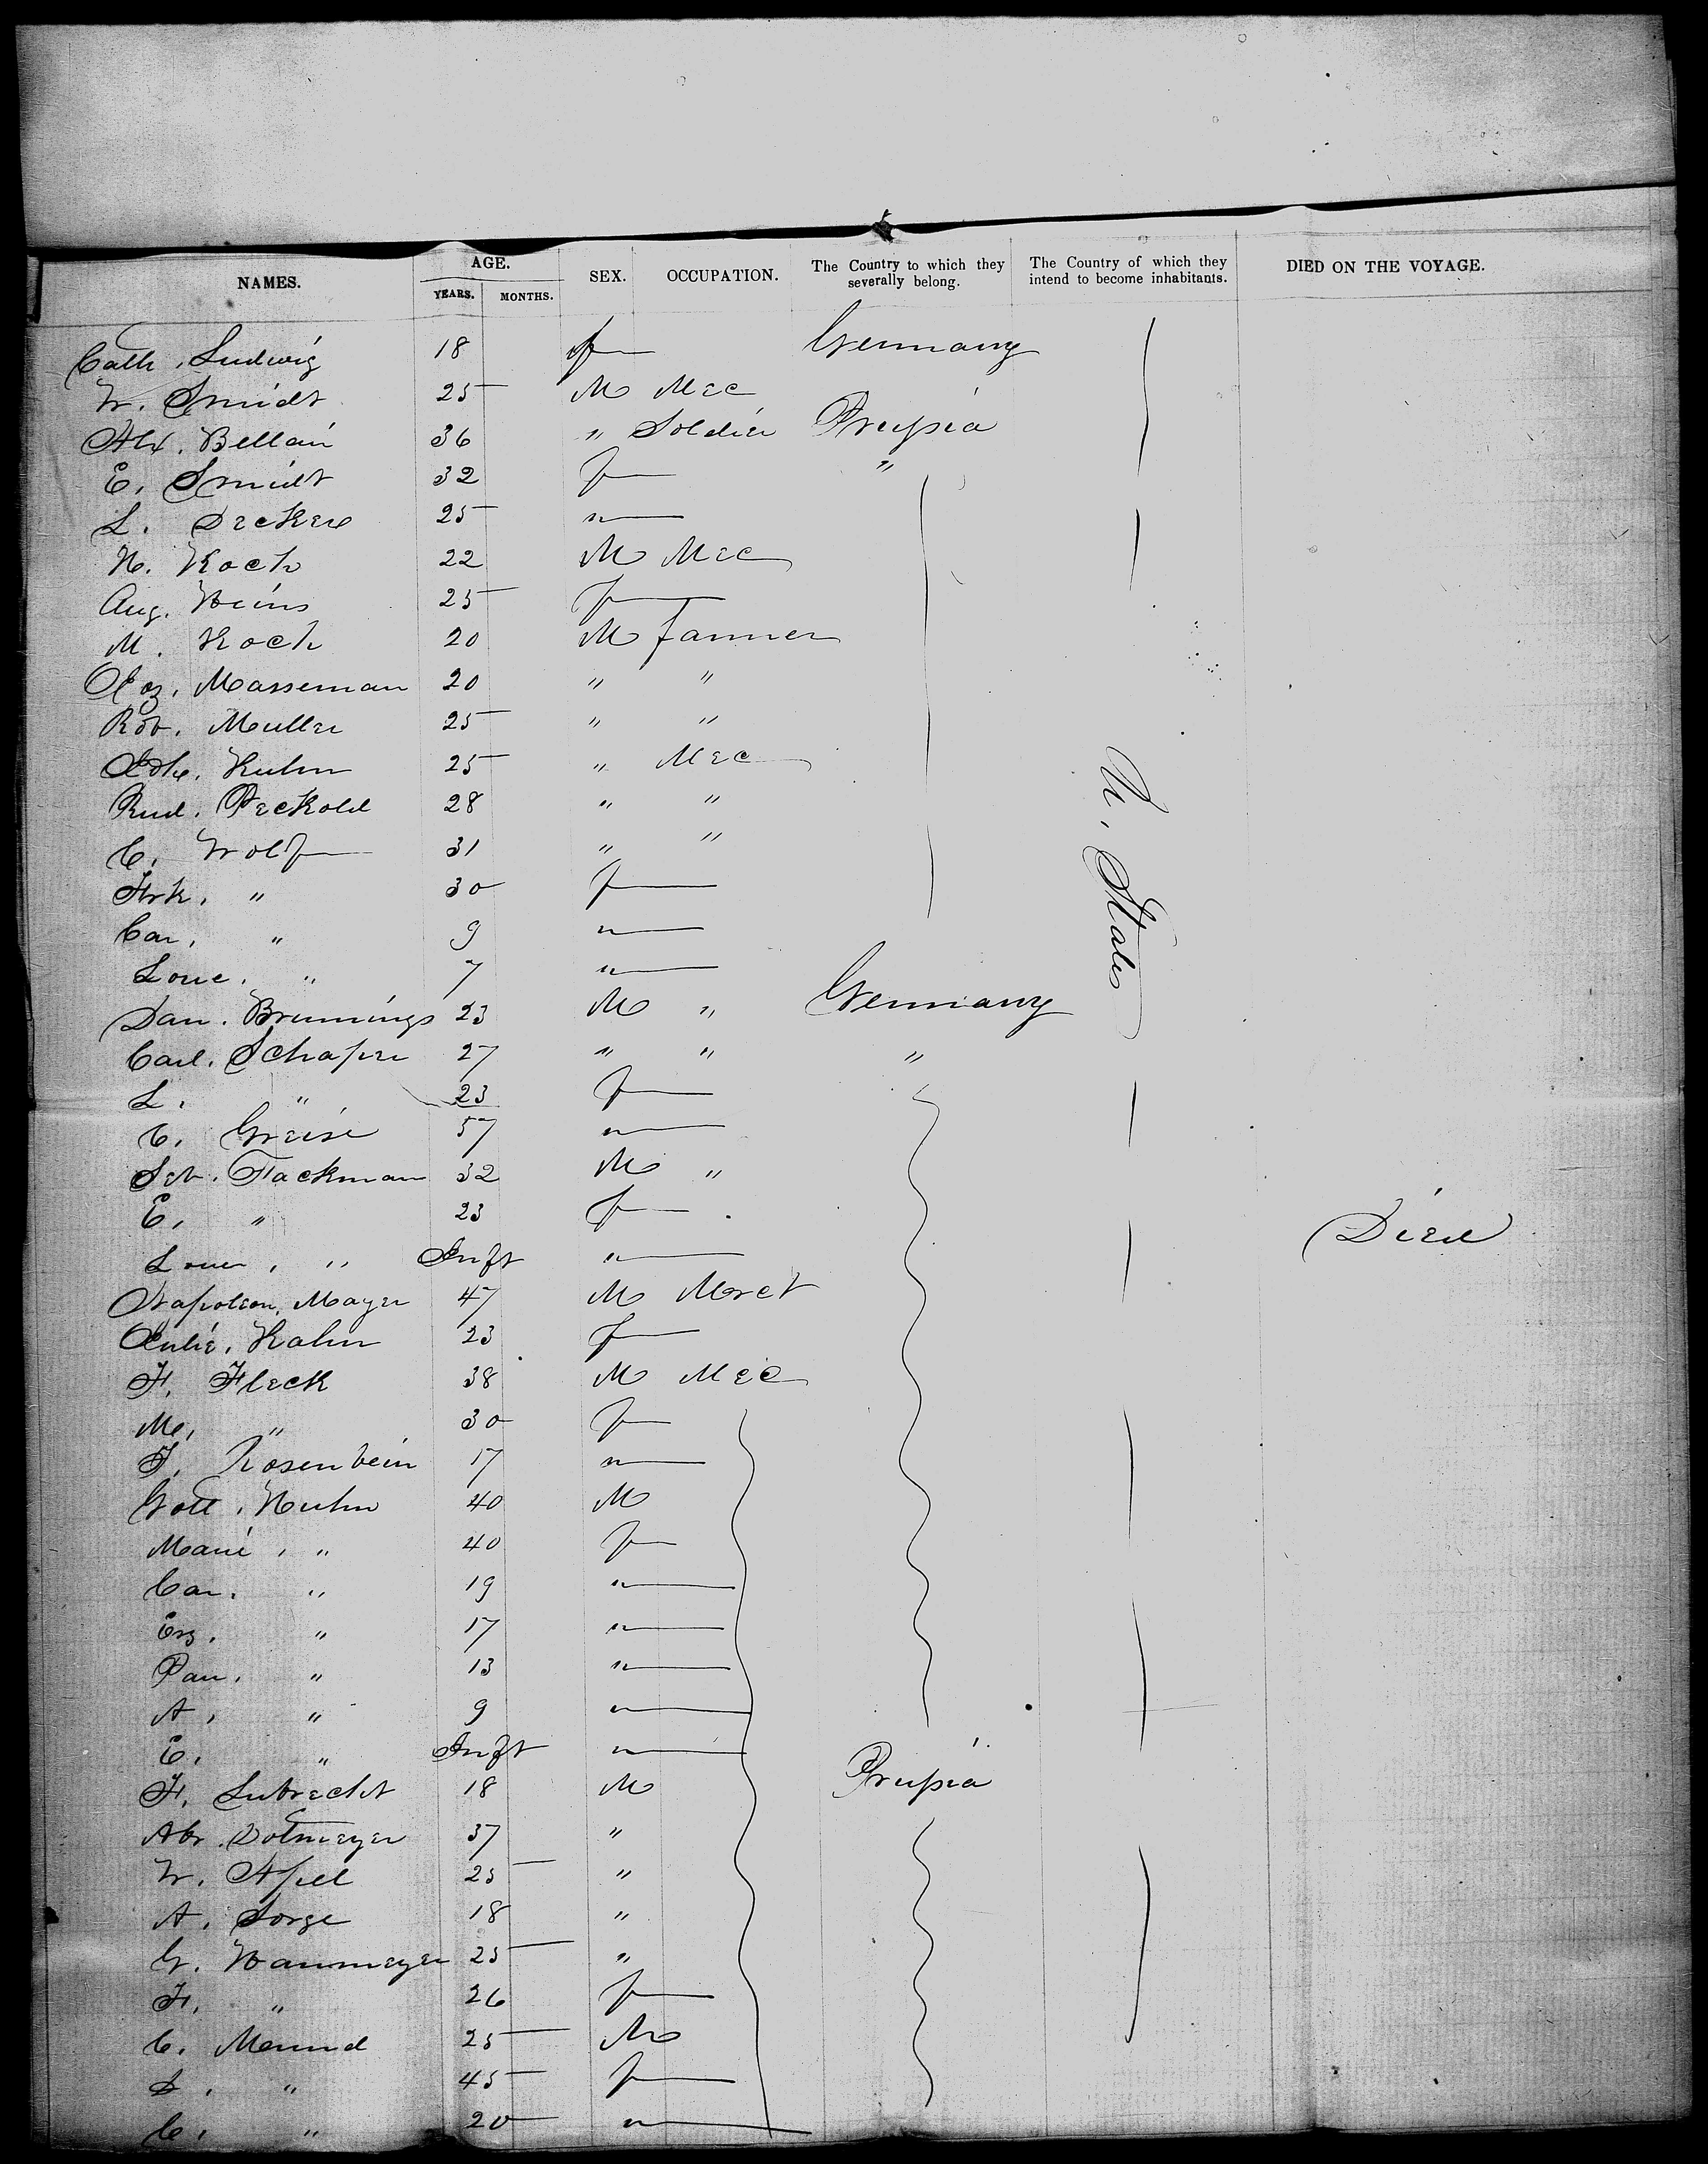 NAMES. AGE. YEARS. MONTHS. SEX. OCCUPATION. The Country to which they severally belong. The Country of which they intend to become inhabitants. DIED ON THE VOYAGE.
Cath. Ludwig 18 f Germany
W. Smidt 25 M Mec
Alx. Bellain 36 " Soldier Prussia
E. Smidt 32 f "
L. Decker 25 "
H. Koch 22 M Mec
Aug. Heins 25 f
M. Koch 20 M farmer
Masseman 20 " "
Rob. Muller 25 " "
Kuhn 25 " Mec
Rud. Peckold 28 " "
C. Wolf 31 " "
Frk. " 30 f
Car. " 9 "
Loue. " 7 "
Dan. Brunnings 23 M " Germany
Carl. Schaper 27 " " "
L. " 23 f
C. Greise 57 "
Seb. Tackman 32 M "
E. " 23 f
Loue. " Inft " Died
Napoleon. Mayer 47 M Mrct
Julie. Kahn 23 f
F. Fleck 38 M Mec
M. " 30 f
F. Rosenbein 17 "
Gott. Huhn 40 M
Marie. " 40 f
Car. " 19 "
" 17 "
Pau. " 13 "
A. " 9 "
E. " Inft "
F. Lubrecht 18 M Prussia
Abr. Dotmeyer 37 "
W. Apel 25 "
A. Sorge 18 "
G. Hanmeyer 25 "
F. " 26 f
C. Mound 25 M
L. " 45 f
C. " 20 "
U. States